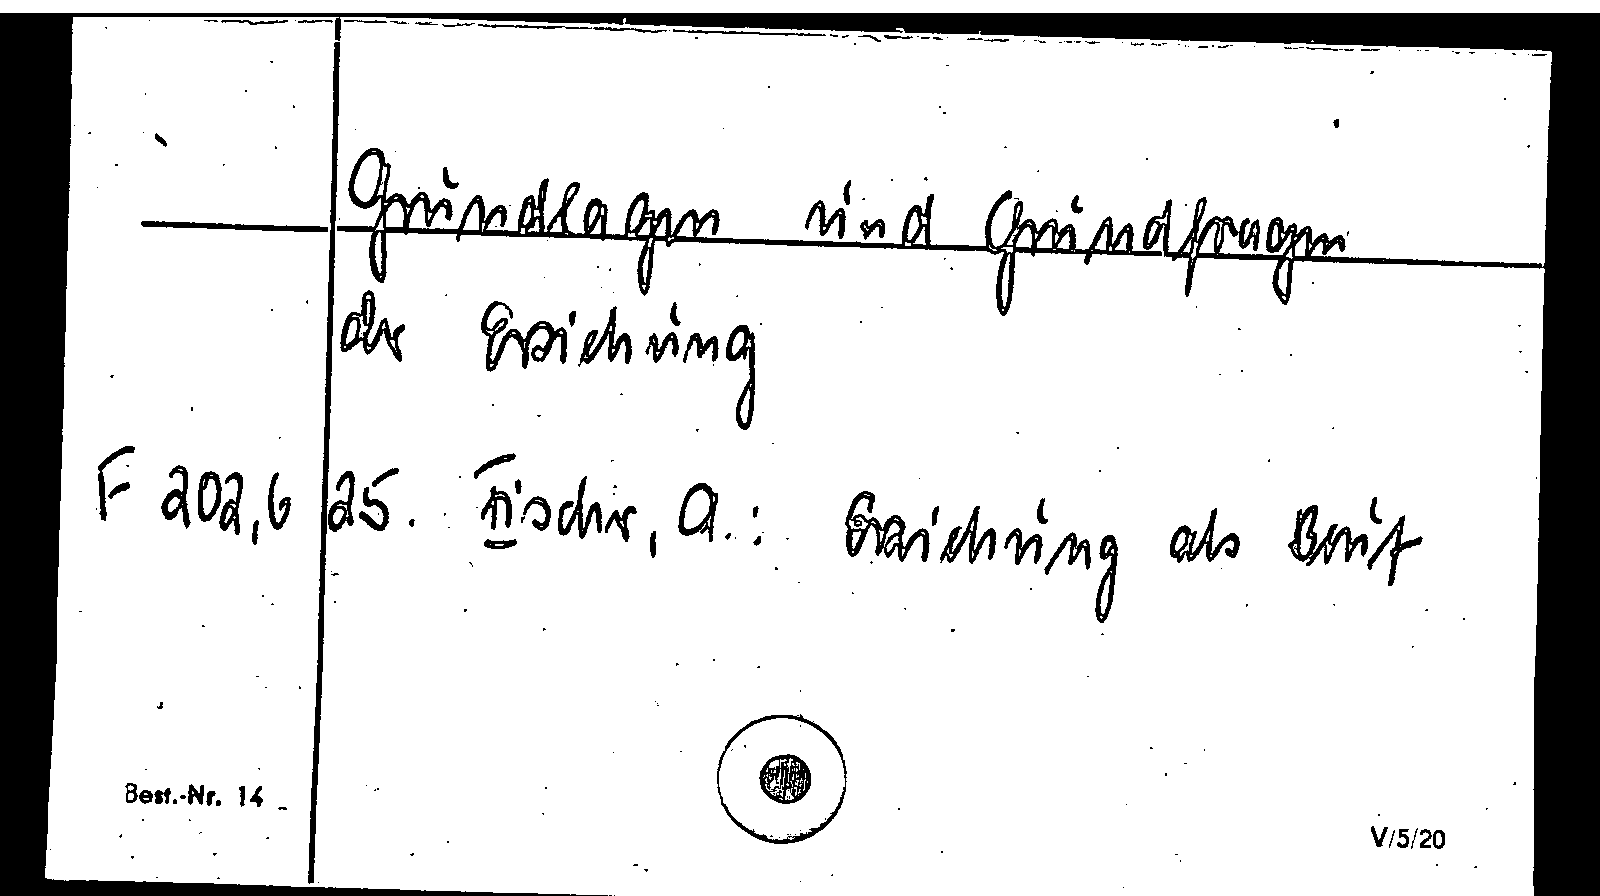 Grundlagen und Grundfragen
der Erziehung
F 202,6 25. Fischer, A.: Erziehung als Beruf
Best.-Nr. 14
V/5/20